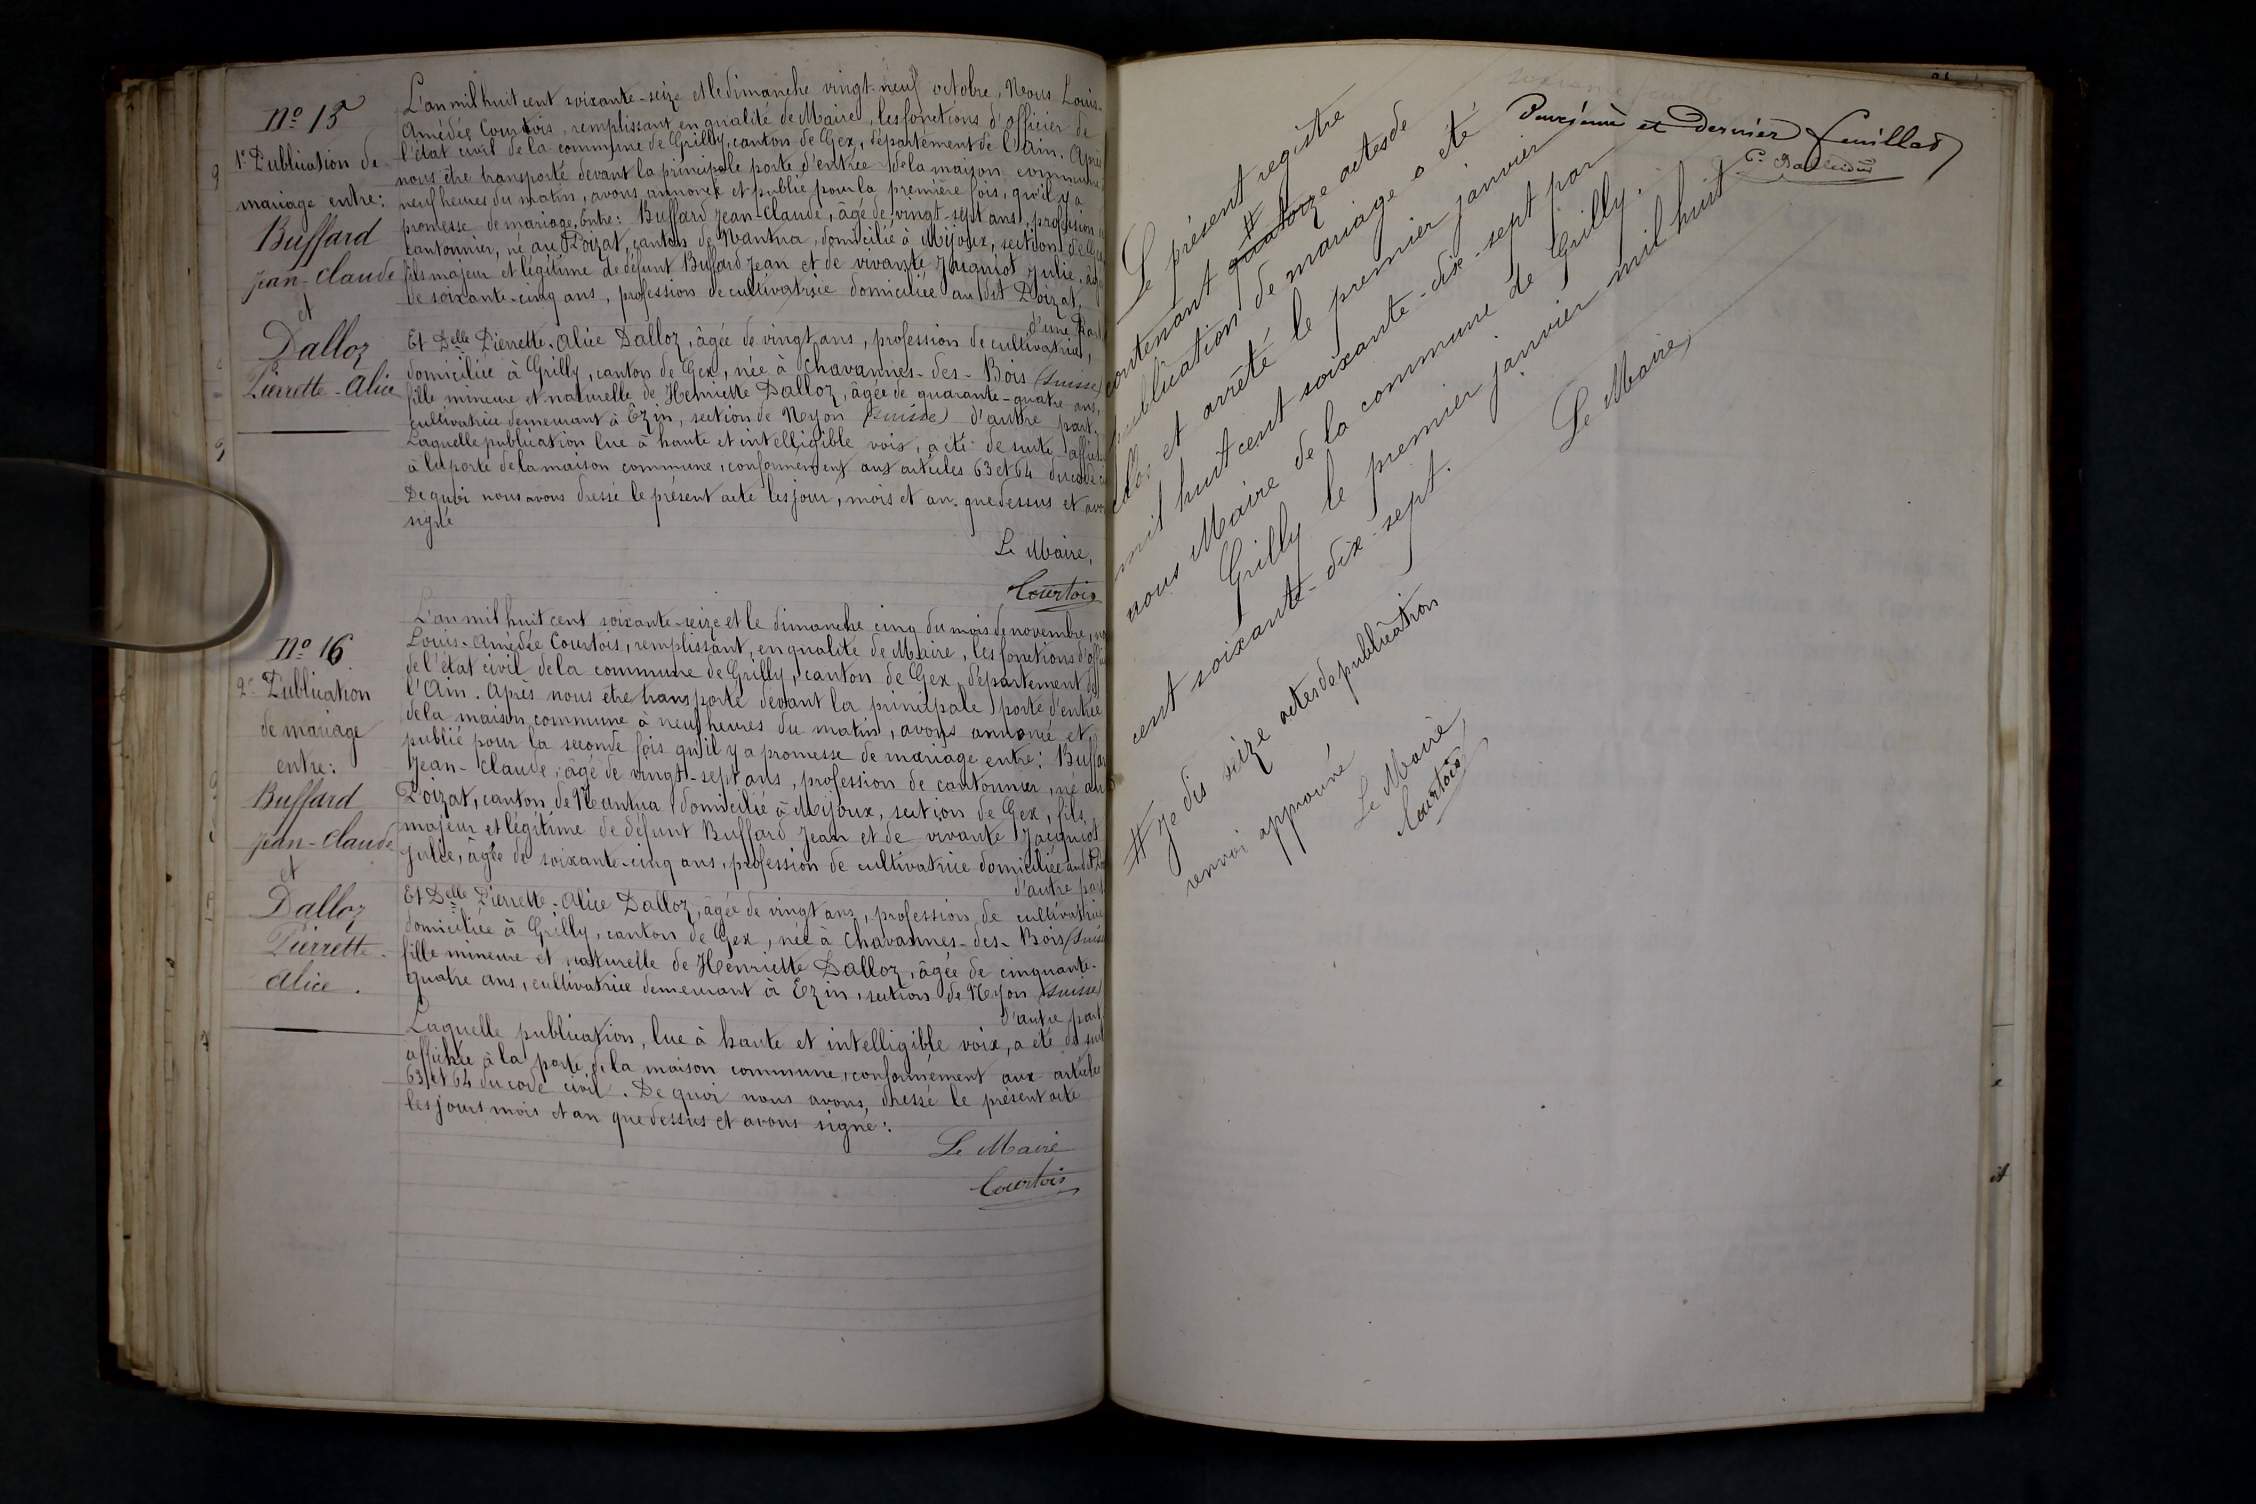 No 15
1e Publication de
mariage entre:
Buffard
Jean-Claude
et
Dalloz
Pierrette-Alice
L'an mil huit cent soixante-seize et le dimanche vingt-neuf octobre, Nous Louis-
Amédée Courtois, remplissant en qualité de Maire, les fonctions d'officier de
l'état civil de la commune de Grilly, canton de Gex, département de l'Ain. Après
nous être transporté devant la principale porte d'entrée de la maison commune
neuf heures du matin, avons annoncé et publié pour la première fois, qu'il y a
promesse de mariage, Entre: Buffard Jean-Claude, âgé de vingt-sept ans, profession
cantonnier, né au Poizat, canton de Nantua, domicilié à Mijoux, section de Gex
fils majeur et légitime de défunt Buffard Jean et de vivante Jacquiot Julie, âgée
de soixante-cinq ans, profession de cultivatrice domiciliée au dit Poizat,
d'une Part
Et Delle Pierrette-Alice Dalloz, âgée de vingt ans, profession de cultivatrice,
domiciliée à Grilly, canton de Gex, née à Chavannes-des-Bois (Suisse)
fille mineure et naturelle de Henriette Dalloz, âgée de quarante-quatre ans,
cultivatrice demeurant à Ezin, section de Nyon (Suisse) d'autre part.
Laquelle publication lue à haute et intelligible voix, a été de suite affichée
à la porte de la maison commune, conformément aux articles 63 et 64 du code
De quoi nous avons dressé le présent acte les jour, mois et an que dessus et avons
signé
Le Maire,
Courtois
No 16
2e Publication
de mariage
entre:
Buffard
Jean-Claude
et
Dalloz
Pierrette-
Alice.
L'an mil huit cent soixante-seize et le dimanche cinq du mois de novembre,
Louis-Amédée Courtois, remplissant, en qualité de Maire, les fonctions d'officier
de l'état civil de la commune de Grilly, canton de Gex, département de
l'Ain. Après nous être transporté devant la principale porte d'entrée
de la maison commune à neuf heures du matin, avons annoncé et
publié pour la seconde fois qu'il y a promesse de mariage entre: Buffard
Jean-Claude, âgé de vingt-sept ans, profession de cantonnier, né au
Poizat, canton de Nantua domicilié à Mijoux, section de Gex, fils
majeur et légitime de défunt Buffard Jean et de vivante Jacquiot
Julie, âgée de soixante-cinq ans, profession de cultivatrice domiciliée audit
d'autre part
Et Delle Pierrette-Alice Dalloz, âgée de vingt ans, profession de cultivatrice
domiciliée à Grilly, canton de Gex, née à Chavannes-des-Bois (Suisse
fille mineure et naturelle de Henriette Dalloz, âgée de cinquante-
quatre ans, cultivatrice demeurant à Ezin, section de Nyon (Suisse)
d'autre part
Laquelle publication, lue à haute et intelligible voix, a été de suite
affichée à la porte de la maison commune, conformément aux articles
63 et 64 du code civil. De quoi nous avons, dressé le présent acte
les jours mois et an que dessus et avons signé:
Le Maire
Courtois
et dernier feuillet
Le présent registre
contenant # quatorze actes de
publication de mariage a été
clos et arrêté le premier janvier
mil huit cent soixante-dix-sept par
nous Maire de la commune de Grilly.
Grilly le premier janvier mil huit
cent soixante-dix-sept.
Le Maire,
# Je dis seize actes de publication
renvoi approuvé
Le Maire,
Courtois